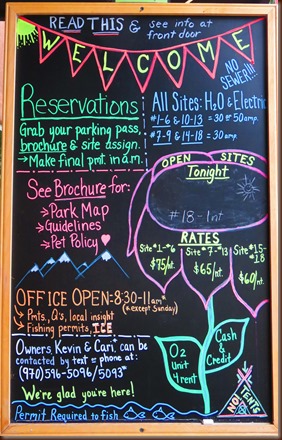 READ THIS & see info at
front door
WELCOME
NO
SEWER!!!
Reservations
Grab your parking pass,
brochure & site assign.
→Make final pmt. in a.m.
All Sites: H₂O & Electric
#1-6 & 10-13 = 30 or 50 amp.
#7-9 & 14-18 = 30 amp.
See Brochure for:
→Park Map
→Guidelines
→Pet Policy
OPEN SITES
Tonight
#18-1nt
RATES
Site #1-6
$75/nt.
Site #7-13
$65/nt.
Site #15-18
$60/nt.
OFFICE OPEN-8:30-11am*
(*except Sunday)
→Pmts., Q's, local insight
→Fishing permits, ICE
Owners, Kevin & Cari, can be
contacted by text or phone at:
(970)596-5096/5093*
We're glad you're here!
Permit Required to fish
O₂
Unit
4 rent
Cash &
Credit
NO TENTS